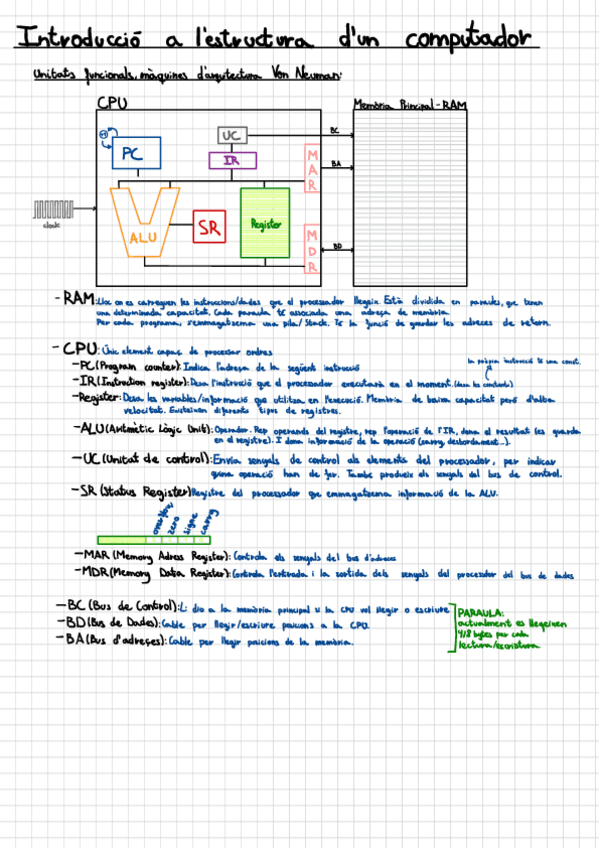 Introducció a l'estructura d'un computador
Unitats funcionals, màquines d'arquitectura Von Neuman:
CPU
Memòria Principal - RAM
UC
BC
+1
PC
IR
MAR
BA
clock
ALU
SR
Register
MDR
BD
- RAM: Lloc on es carreguen les instruccions/dades que el processador llegeix. Està dividida en paraules, que tenen
una determinada capacitat. Cada paraula té associada una adreça de memòria.
Per cada programa, s'emmagatzema una pila/Stack. Té la funció de guardar les adreces de retorn.
- CPU: Únic element capaç de processar ordres
- PC (Program counter): Indica l'adreça de la següent instrucció
la pròpia instrucció té una const.
- IR (Instruction register): Desa l'instrucció que el processador executarà en el moment. (desa les constants)
- Register: Desa les variables/informació que utilitza en l'execució. Memòria de baixa capacitat però d'alta
velocitat. Existeixen diferents tipus de registres.
- ALU (Aritmètic Lògic Unit): Operador. Rep operands del registre, rep l'operació de l'IR, dona el resultat (es guarda
en el registre). I dona informació de la operació (carry, desbordament...).
- UC (Unitat de control): Envia senyals de control als elements del processador, per indicar
quina operació han de fer. També produeix els senyals del bus de control.
- SR (Status Register) Registre del processador que emmagatzema informació de la ALU.
overflow
zero
signe
carry
- MAR (Memory Adress Register): Controla els senyals del bus d'adreces
- MDR (Memory Data Register): Controla l'entrada i la sortida dels senyals del processador del bus de dades
- BC (Bus de Control): Li diu a la memòria principal si la CPU vol llegir o escriure
- BD (Bus de Dades): Cable per llegir/escriure posicions a la CPU.
- BA (Bus d'adreçes): Cable per llegir posicions de la memòria.
PARAULA:
actualment es llegeixen
4/8 bytes per cada
lectura/escriptura